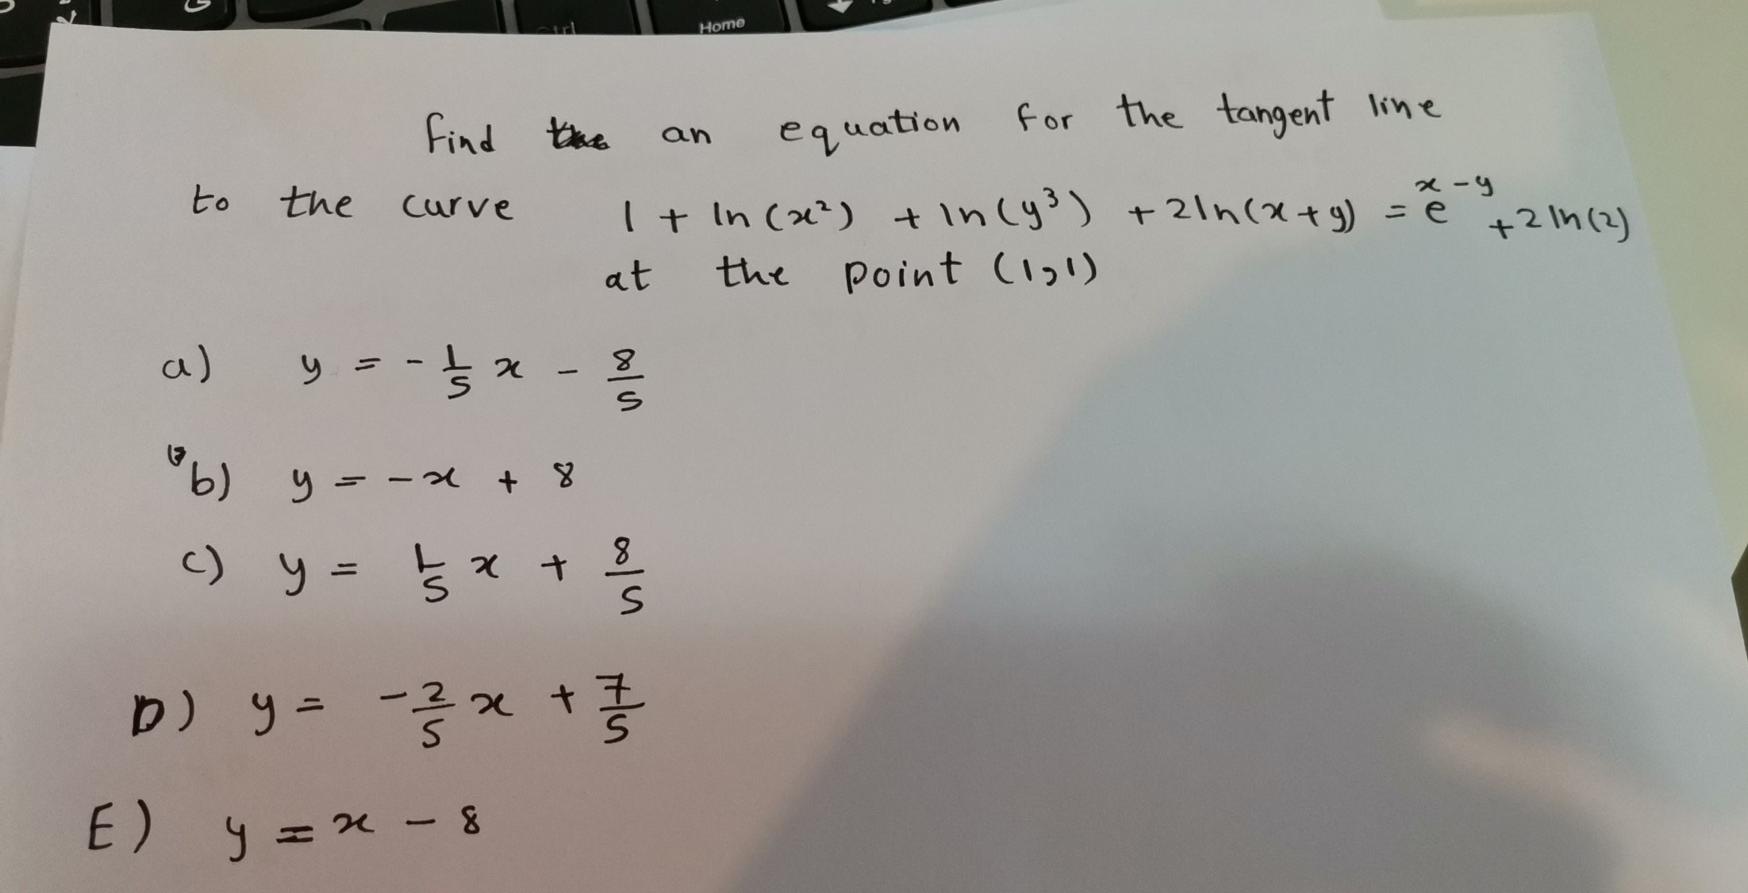 Home
find an equation for the tangent line
to the curve 1 + ln(x²) + ln(y³) + 2ln(x+y) = e^(x-y) + 2 ln(2)
at the point (1,1)
a) y = - 1/5 x - 8/5
b) y = - x + 8
c) y = 1/5 x + 8/5
D) y = - 2/5 x + 7/5
E) y = x - 8